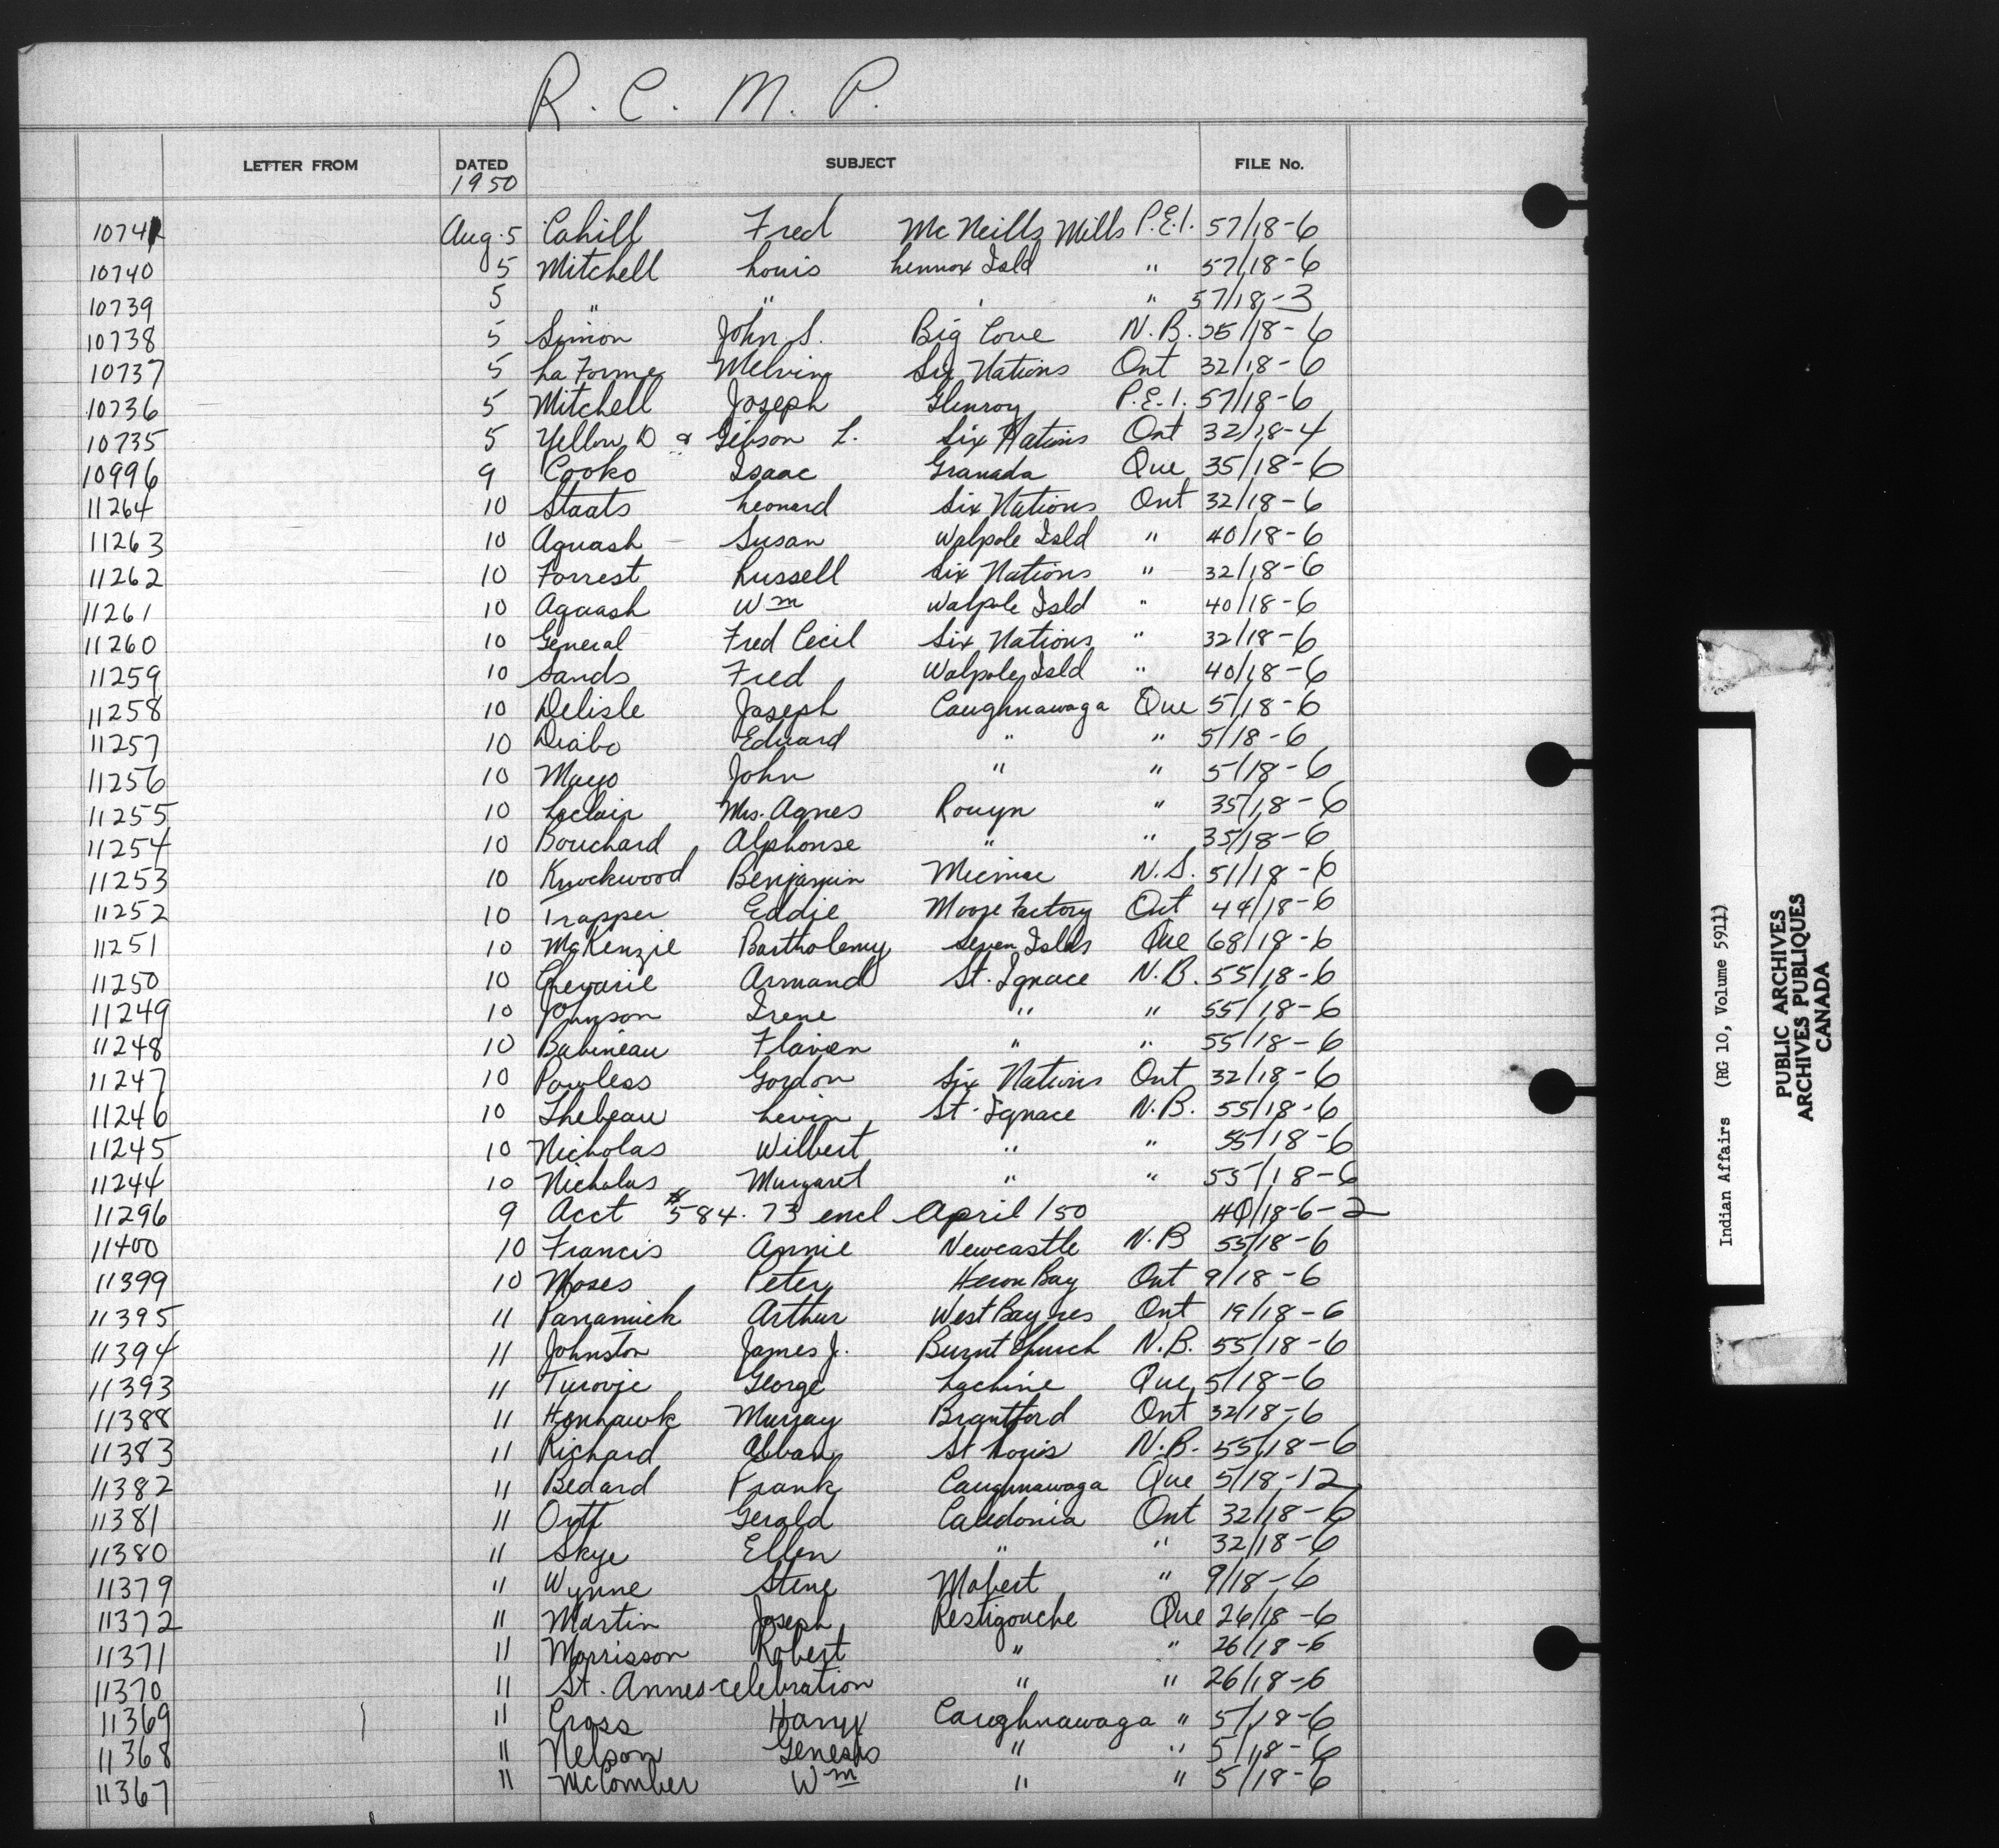 R. C. M. P.
LETTER FROM DATED SUBJECT FILE No.
1950
10741 Aug. 5 Cahill Fred McNeills Mills P.E.I. 57/18-6
10740 5 Mitchell Louis Lennox Isld " 57/18-6
10739 5 " " " " 57/18-3
10738 5 Simon John S. Big Cove N.B. 55/18-6
10737 5 LaForme Melvin Six Nations Ont 32/18-6
10736 5 Mitchell Joseph Glenroy P.E.I. 57/18-6
10735 5 Yellow D & Gibson L. Six Nations Ont 32/18-4
10996 9 Cooko Isaac Granada Que 35/18-6
11264 10 Staats Leonard Six Nations Ont 32/18-6
11263 10 Aquash Susan Walpole Isld " 40/18-6
11262 10 Forrest Russell Six Nations " 32/18-6
11261 10 Aquash Wm Walpole Isld " 40/18-6
11260 10 General Fred Cecil Six Nations " 32/18-6
11259 10 Sands Fred Walpole Isld " 40/18-6
11258 10 Delisle Joseph Caughnawaga Que 5/18-6
11257 10 Diabo Edward " " 5/18-6
11256 10 Mayo John " " 5/18-6
11255 10 Leclair Mrs. Agnes Rouyn " 35/18-6
11254 10 Bouchard Alphonse " " 35/18-6
11253 10 Knockwood Benjamin Micmac N.S. 51/18-6
11252 10 Trapper Eddie Moose Factory Ont 44/18-6
11251 10 McKenzie Bartholemy Seven Islds Que 68/18-6
11250 10 Chevarie Armand St. Ignace N.B. 55/18-6
11249 10 Johnson Irene " " 55/18-6
11248 10 Babineau Flavien " " 55/18-6
11247 10 Powless Gordon Six Nations Ont 32/18-6
11246 10 Thebeau Levin St. Ignace N.B. 55/18-6
11245 10 Nicholas Wilbert " " 55/18-6
11244 10 Nicholas Margaret " " 55/18-6
11296 9 Acct #584.73 encl April /50 40/18-6-2
11400 10 Francis Annie Newcastle N.B 55/18-6
11399 10 Moses Peter Heron Bay Ont 9/18-6
11395 11 Panamick Arthur West Bay res Ont 19/18-6
11394 11 Johnston James J. Burnt Church N.B. 55/18-6
11393 11 George Lachine Que 5/18-6
11388 11 Henhawk Murray Brantford Ont 32/18-6
11383 11 Richard Alban St Louis N.B. 55/18-6
11382 11 Bedard Frank Caughnawaga Que 5/18-12
11381 11 Ortt Gerald Caledonia Ont 32/18-6
11380 11 Skye Ellen " " 32/18-6
11379 11 Wynne Steve Mobert " 9/18-6
11372 11 Martin Joseph Restigouche Que 26/18-6
11371 11 Morrisson Robert " " 26/18-6
11370 11 St. Annes celebration " " 26/18-6
11369 11 Cross Harry Caughnawaga " 5/18-6
11368 11 Nelson Genesis " " 5/18-6
11367 11 McComber Wm " " 5/18-6
Indian Affairs (RG 10, Volume 5911)
PUBLIC ARCHIVES
ARCHIVES PUBLIQUES
CANADA